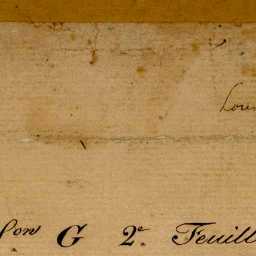 Loui
Con G 2e Feuill